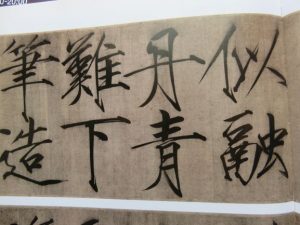 似融
丹青
難下
筆造